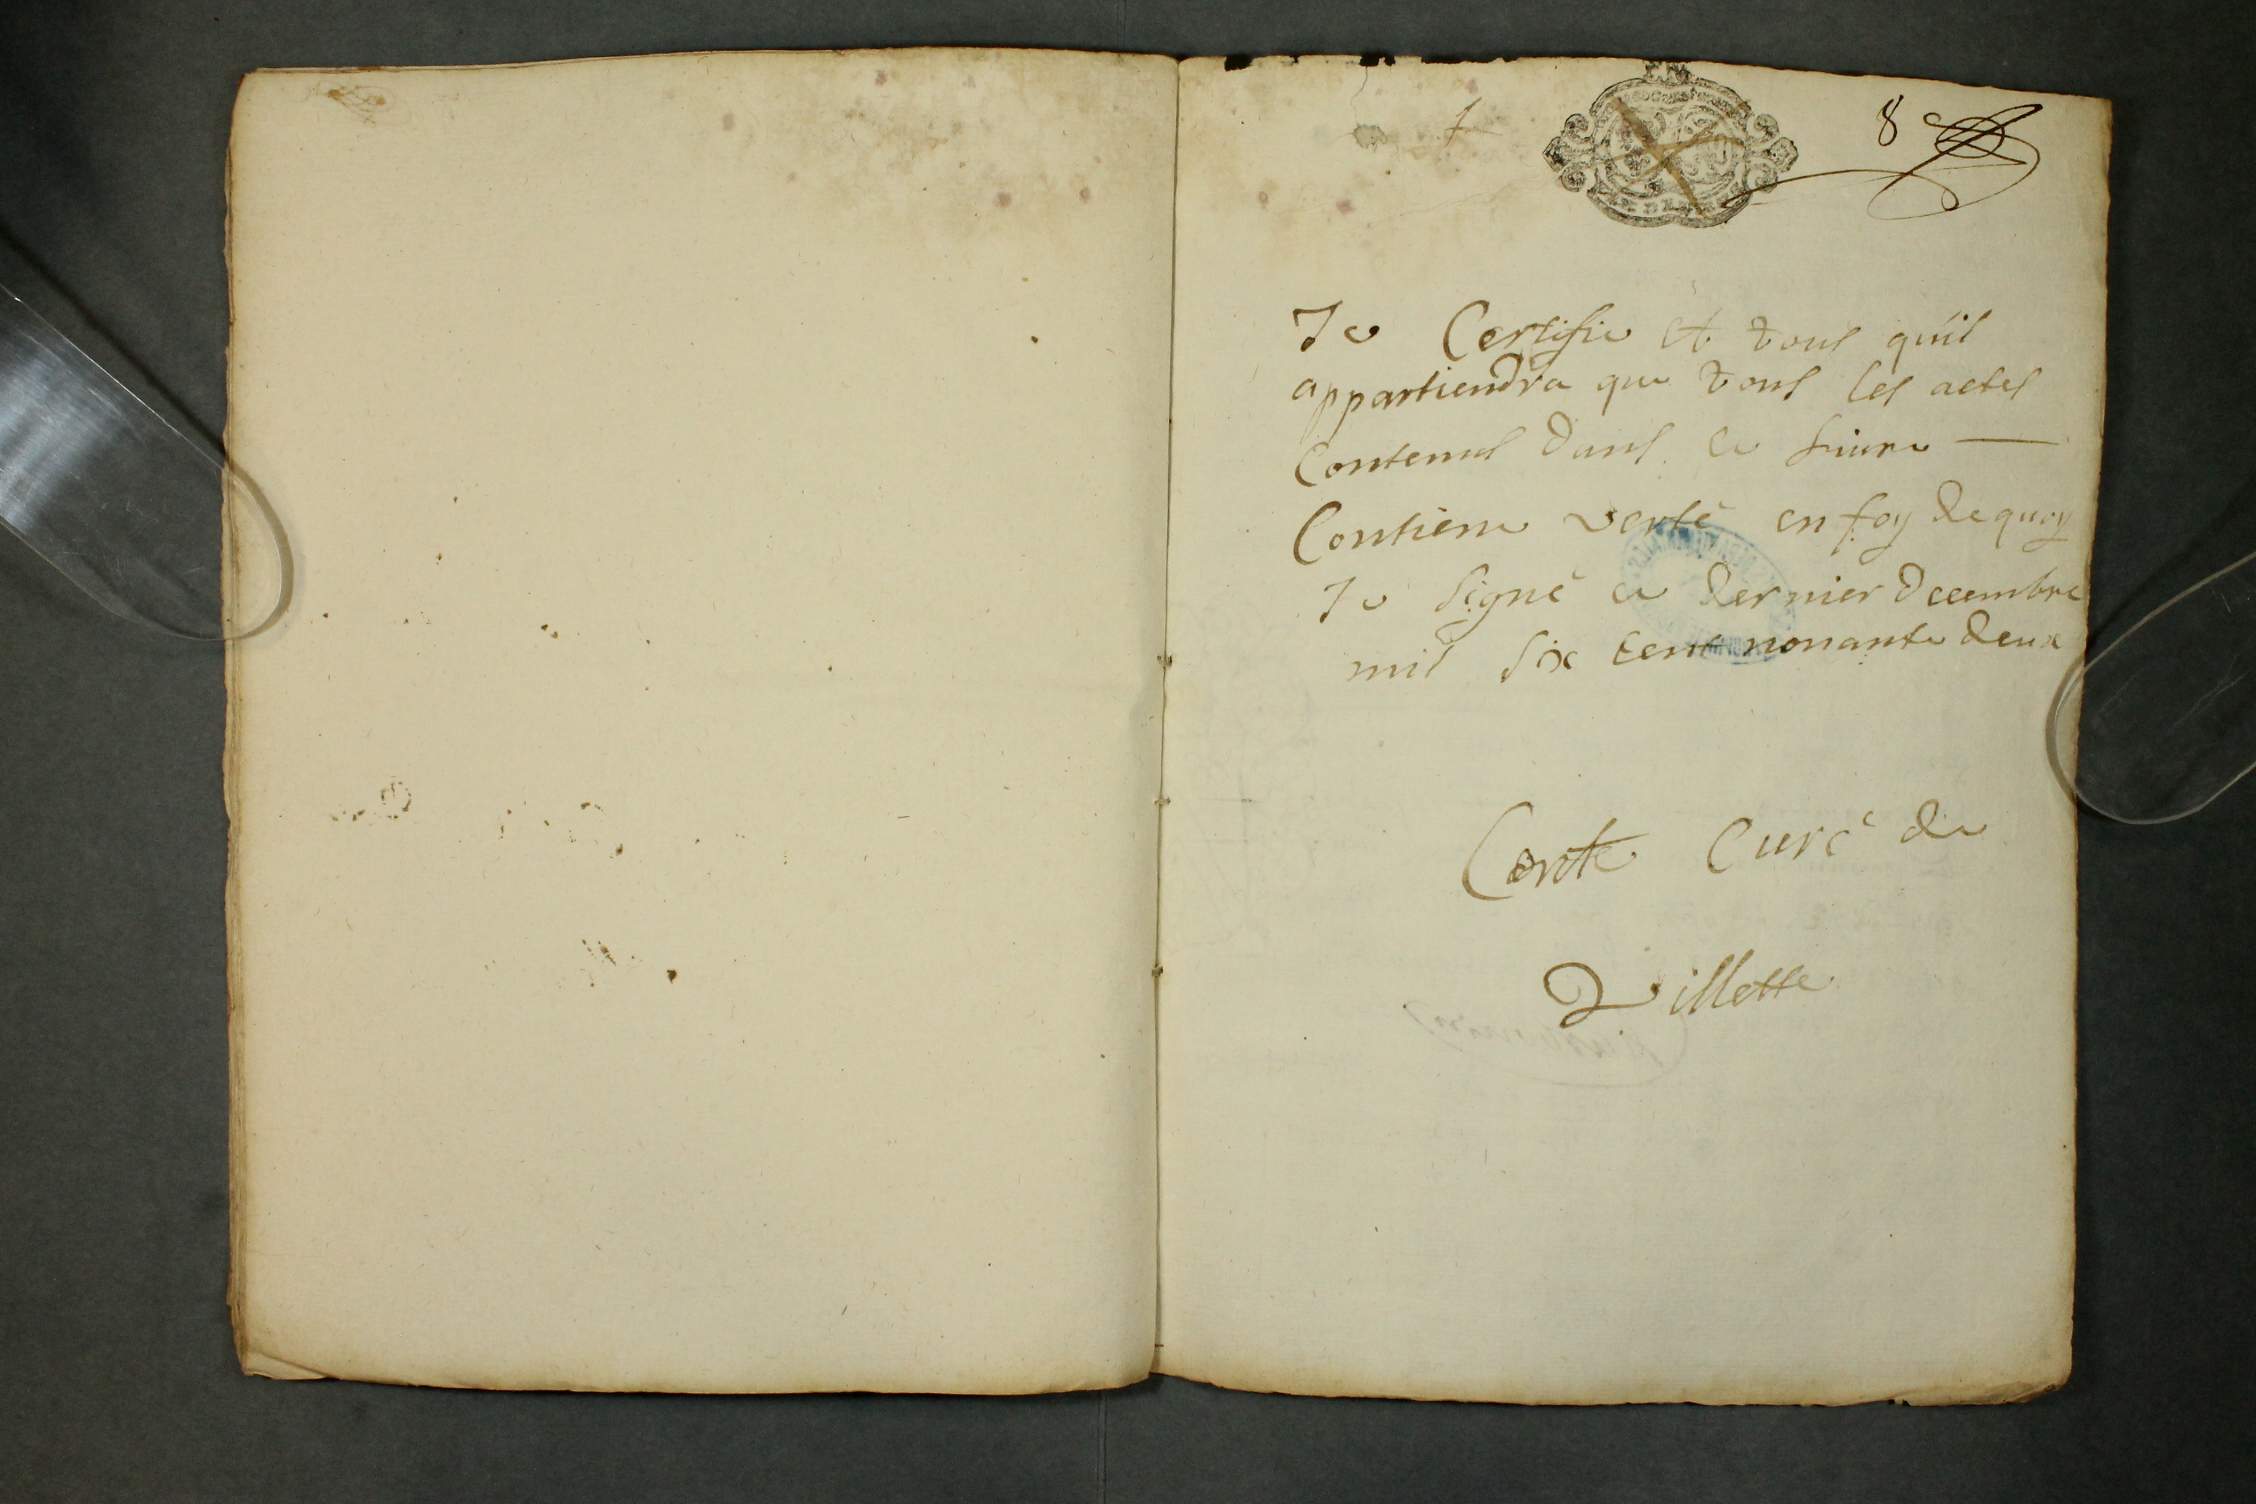 8
Je Certifie et tous quil
appartiendra que tous les actes
Contenus dans ce livre —
Contiene verté en foy de quoy
Je signé ce dernier Decembre
mil six cent nonante deux
Conte Curé de
Villette